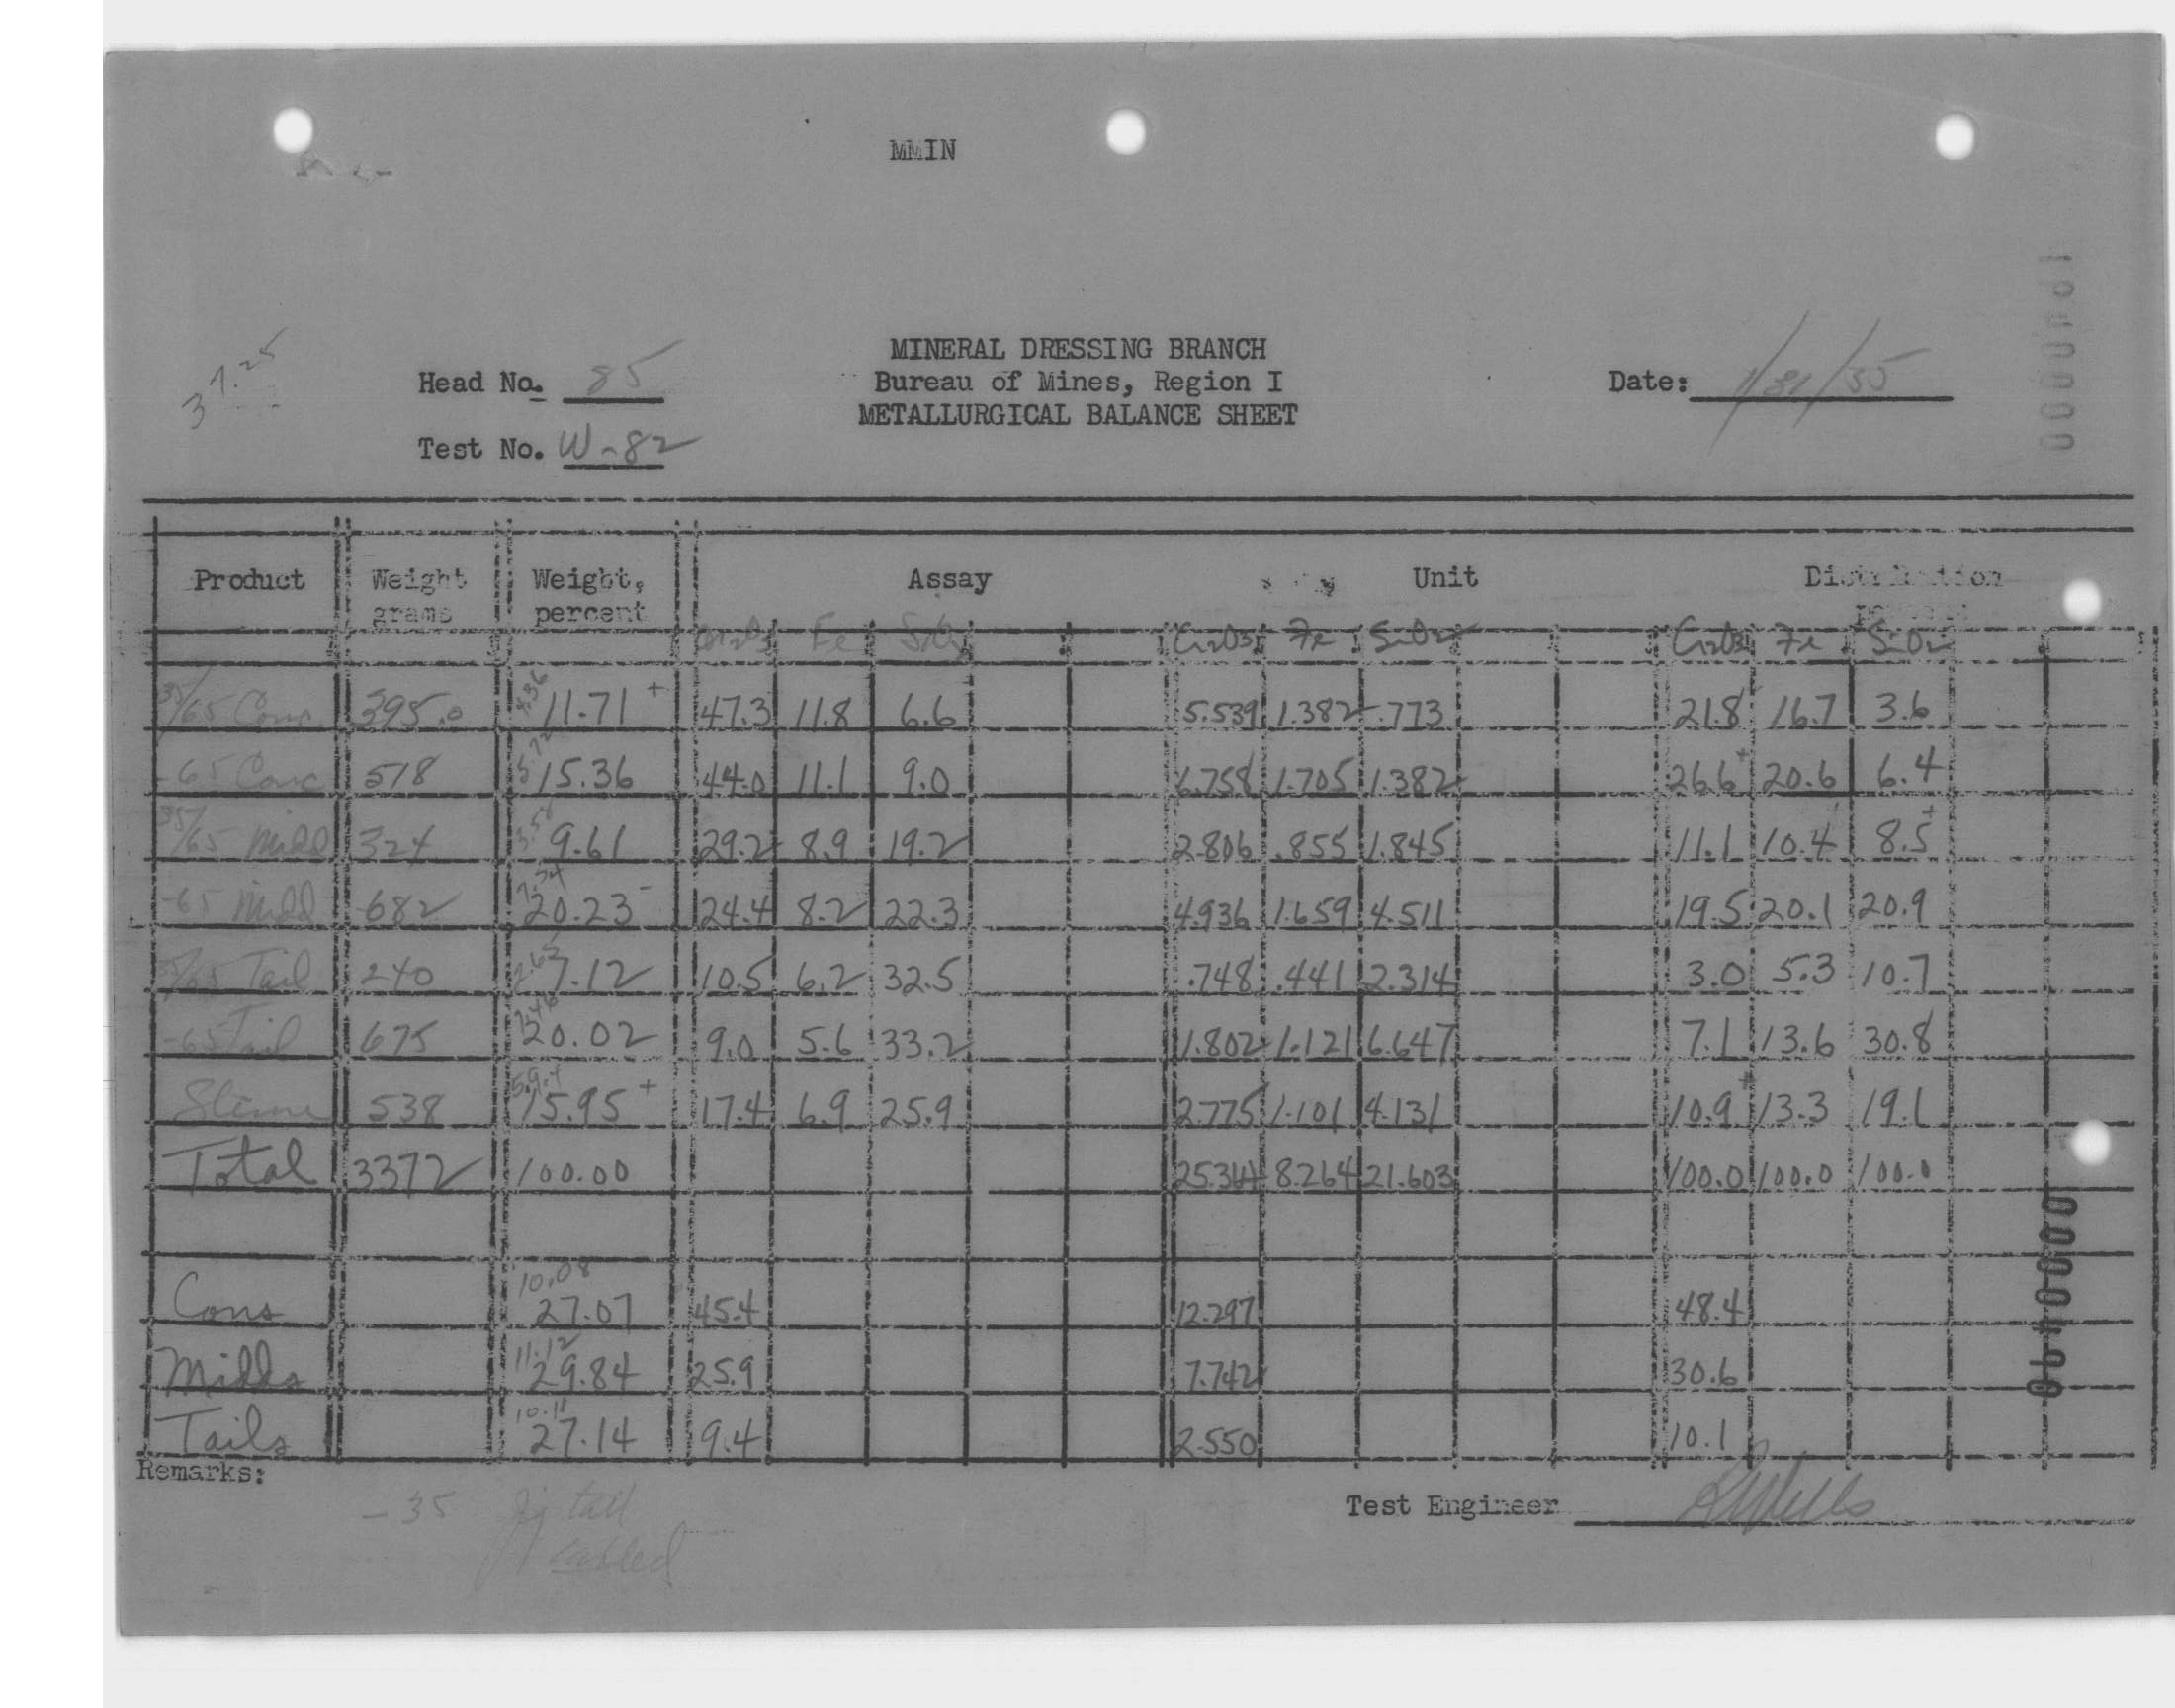 MMIN
37.25
MINERAL DRESSING BRANCH
Head No. 85 Bureau of Mines, Region I Date: 1/31/55
METALLURGICAL BALANCE SHEET
Test No. W-82
Product Weight grams Weight, percent Assay Unit Distribution
Cr2O3 Fe SiO2 Cr2O3 Fe SiO2 Cr2O3 Fe SiO2
35/65 Conc 395.0 4.36 11.71 + 47.3 11.8 6.6 5.539 1.382 .773 21.8 16.7 3.6
-65 Conc 518 5.72 15.36 44.0 11.1 9.0 6.758 1.705 1.382 26.6 + 20.6 6.4
35/65 Midd 324 3.58 9.61 29.2 8.9 19.2 2.806 .855 1.845 11.1 10.4 + 8.5 +
-65 Midd 682 7.54 20.23 - 24.4 8.2 22.3 4.936 1.659 4.511 19.5 20.1 20.9
35/65 Tail 240 2.65 7.12 10.5 6.2 32.5 .748 .441 2.314 3.0 5.3 10.7
-65 Tail 675 7.46 20.02 9.0 5.6 33.2 1.802 1.121 6.647 7.1 13.6 30.8
Slime 538 5.94 15.95 + 17.4 6.9 25.9 2.775 1.101 4.131 10.9 + 13.3 19.1
Total 3372 100.00 25.364 8.264 21.603 100.0 100.0 100.0
Cons 10.08 27.07 45.4 12.297 48.4
Midds 11.12 29.84 25.9 7.742 30.6
Tails 10.11 27.14 9.4 2.550 10.1
Remarks:
-35 Jig tail
tabled
Test Engineer RRWells
000040